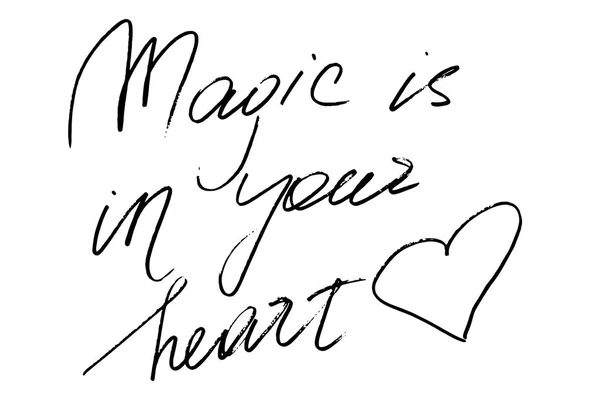 Magic is
in your
heart